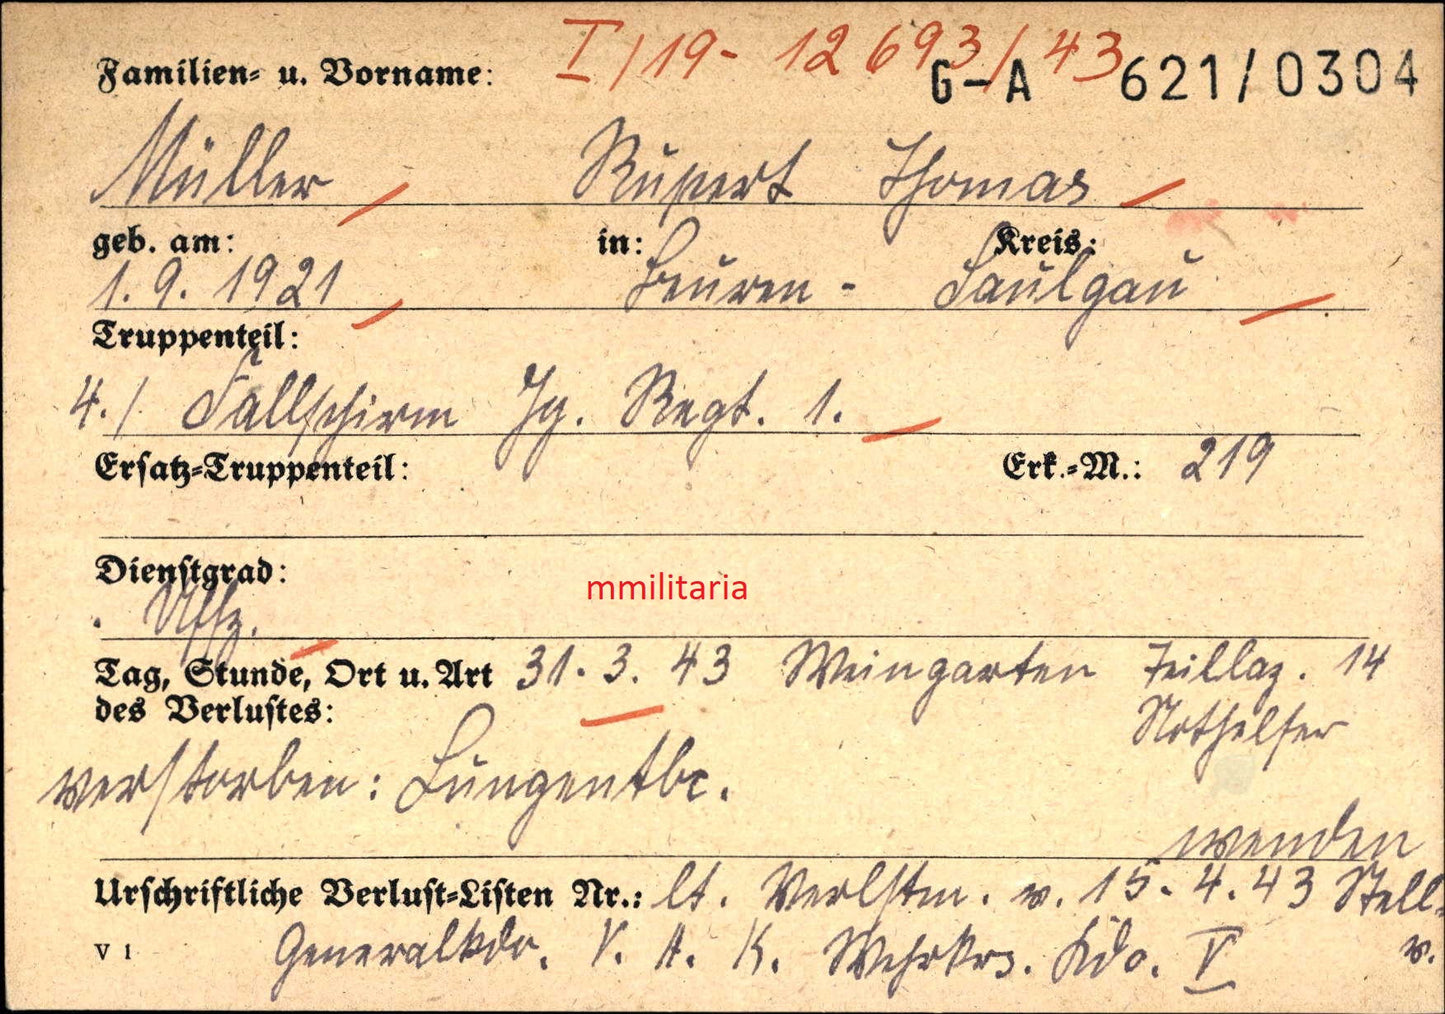 I/19-12693/43
Familien- u. Vorname: G-A 621/0304
Müller Rupert Thomas
geb. am: in: Kreis:
1.9.1921 Beuren - Saulgau
Truppenteil:
4./ Fallschirm Jg. Regt. 1.
Ersatz-Truppenteil: Erk.-M.: 219
Dienstgrad:
mmilitaria
. Uffz.
Tag, Stunde, Ort u. Art 31.3.43 Weingarten Teillaz. 14
des Verlustes: Nothelfer
verstorben: Lungentbc.
wenden
Urschriftliche Verlust-Listen Nr.: lt. Verlstm. v. 15.4.43 Stell.
V 1 Generalkdo. V. A. K. Wehrkrs. Kdo. V v.